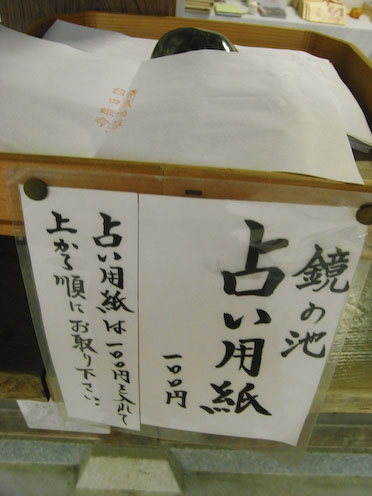 鏡の池
占い用紙
一〇〇円
占い用紙は一〇〇円を入れて
上から順にお取り下さい。
稲田姫命